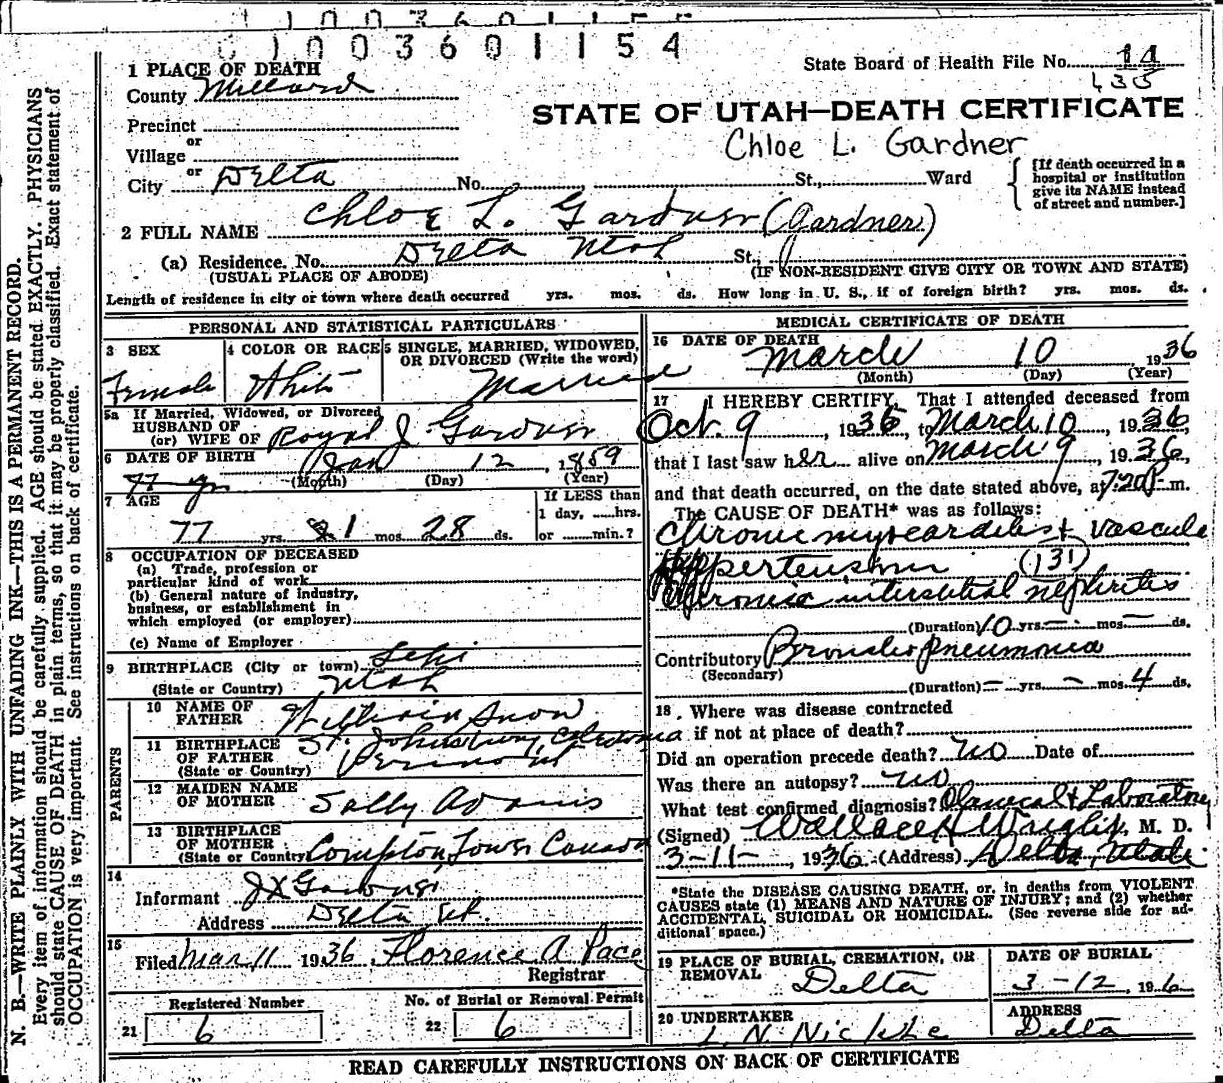 1003601154
1 PLACE OF DEATH
State Board of Health File No. 14
County Millard
435
STATE OF UTAH—DEATH CERTIFICATE
Precinct
or
Village
Chloe L. Gardner
or
City Delta No. St., Ward
[If death occurred in a
hospital or institution
give its NAME instead
of street and number.]
2 FULL NAME Chloe L. Gardner (Gardner)
(a) Residence. No. Delta Utah St.,
(USUAL PLACE OF ABODE) (IF NON-RESIDENT GIVE CITY OR TOWN AND STATE)
Length of residence in city or town where death occurred yrs. mos. ds. How long in U. S., if of foreign birth? yrs. mos. ds.
PERSONAL AND STATISTICAL PARTICULARS
3 SEX
Female
4 COLOR OR RACE
White
5 SINGLE, MARRIED, WIDOWED,
OR DIVORCED (Write the word)
Married
5a If Married, Widowed, or Divorced
HUSBAND OF
(or) WIFE OF Royal J Gardner
6 DATE OF BIRTH Jan 12, 1859
(Month) (Day) (Year)
77 yr
7 AGE
77 yrs. 1 mos. 28 ds.
If LESS than
1 day, hrs.
or min.?
8 OCCUPATION OF DECEASED
(a) Trade, profession or
particular kind of work
(b) General nature of industry,
business, or establishment in
which employed (or employer)
(c) Name of Employer
9 BIRTHPLACE (City or town) Lehi
(State or Country) Utah
PARENTS
10 NAME OF
FATHER William Snow
11 BIRTHPLACE
OF FATHER
(State or Country)
St. Johnsbury, Caledonia
Vermont
12 MAIDEN NAME
OF MOTHER Sally Adams
13 BIRTHPLACE
OF MOTHER
(State or Country) Compton Lower Canada
14
Informant
Address Delta Ut.
15
Filed Mar 11 1936 Florence A Pace
Registrar
Registered Number
21 6
No. of Burial or Removal Permit
22 6
MEDICAL CERTIFICATE OF DEATH
16 DATE OF DEATH
March 10 1936
(Month) (Day) (Year)
17 I HEREBY CERTIFY, That I attended deceased from
Oct. 9, 1935, to March 10, 1936
that I last saw her alive on March 9, 1936,
and that death occurred, on the date stated above, at 7:20 P. m.
The CAUSE OF DEATH* was as follows:
Chronic myocarditis + vascular
Hypertension (131)
Chronic interstitial nephritis
(Duration) 10 yrs. — mos. — ds.
Contributory Broncho pneumonia
(Secondary)
(Duration) — yrs. — mos. 4 ds.
18. Where was disease contracted
if not at place of death?
Did an operation precede death? no Date of
Was there an autopsy? no
What test confirmed diagnosis? Clinical + Laboratory
(Signed) Wallace H Wright, M. D.
3-11-, 1936 (Address) Delta, Utah
*State the DISEASE CAUSING DEATH, or, in deaths from VIOLENT
CAUSES state (1) MEANS AND NATURE OF INJURY; and (2) whether
ACCIDENTAL, SUICIDAL OR HOMICIDAL. (See reverse side for ad-
ditional space.)
19 PLACE OF BURIAL, CREMATION, OR
REMOVAL Delta
DATE OF BURIAL
3-12, 1936
20 UNDERTAKER
L. N. Nickle
ADDRESS
Delta
READ CAREFULLY INSTRUCTIONS ON BACK OF CERTIFICATE
N. B.—WRITE PLAINLY WITH UNFADING INK—THIS IS A PERMANENT RECORD.
Every item of information should be carefully supplied. AGE should be stated EXACTLY. PHYSICIANS
should state CAUSE OF DEATH in plain terms, so that it may be properly classified. Exact statement of
OCCUPATION is very important. See instructions on back of certificate.